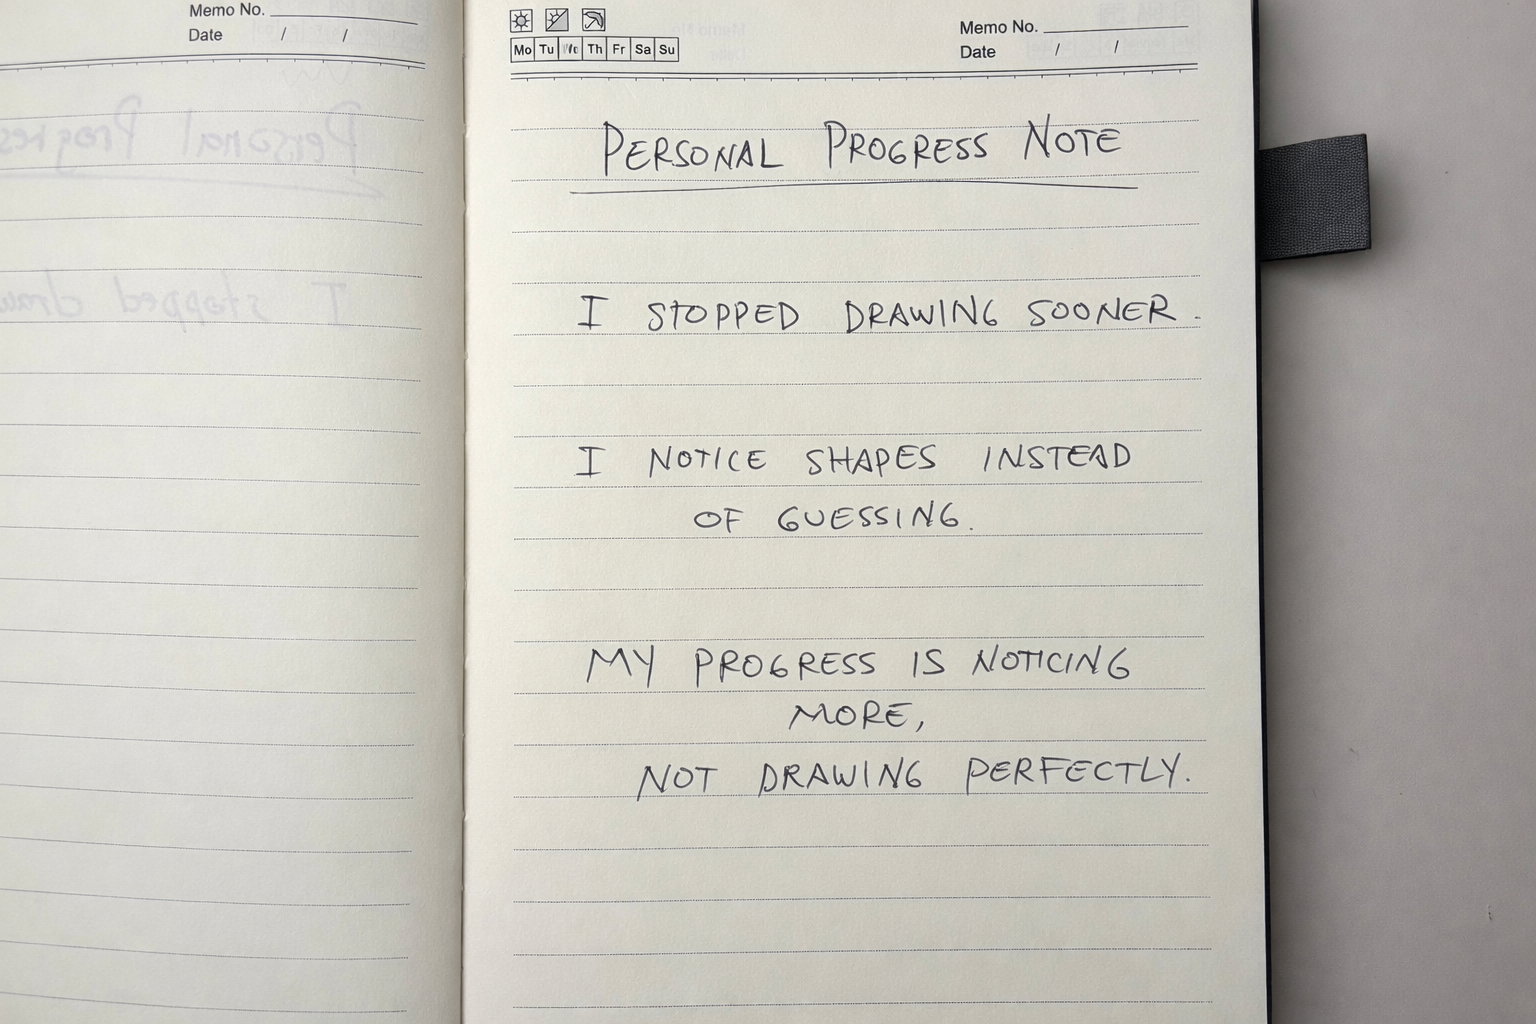 Memo No.
Date / /
Mo Tu We Th Fr Sa Su
Memo No.
Date / /
PERSONAL PROGRESS NOTE
I STOPPED DRAWING SOONER.
I NOTICE SHAPES INSTEAD
OF GUESSING.
MY PROGRESS IS NOTICING
MORE,
NOT DRAWING PERFECTLY.